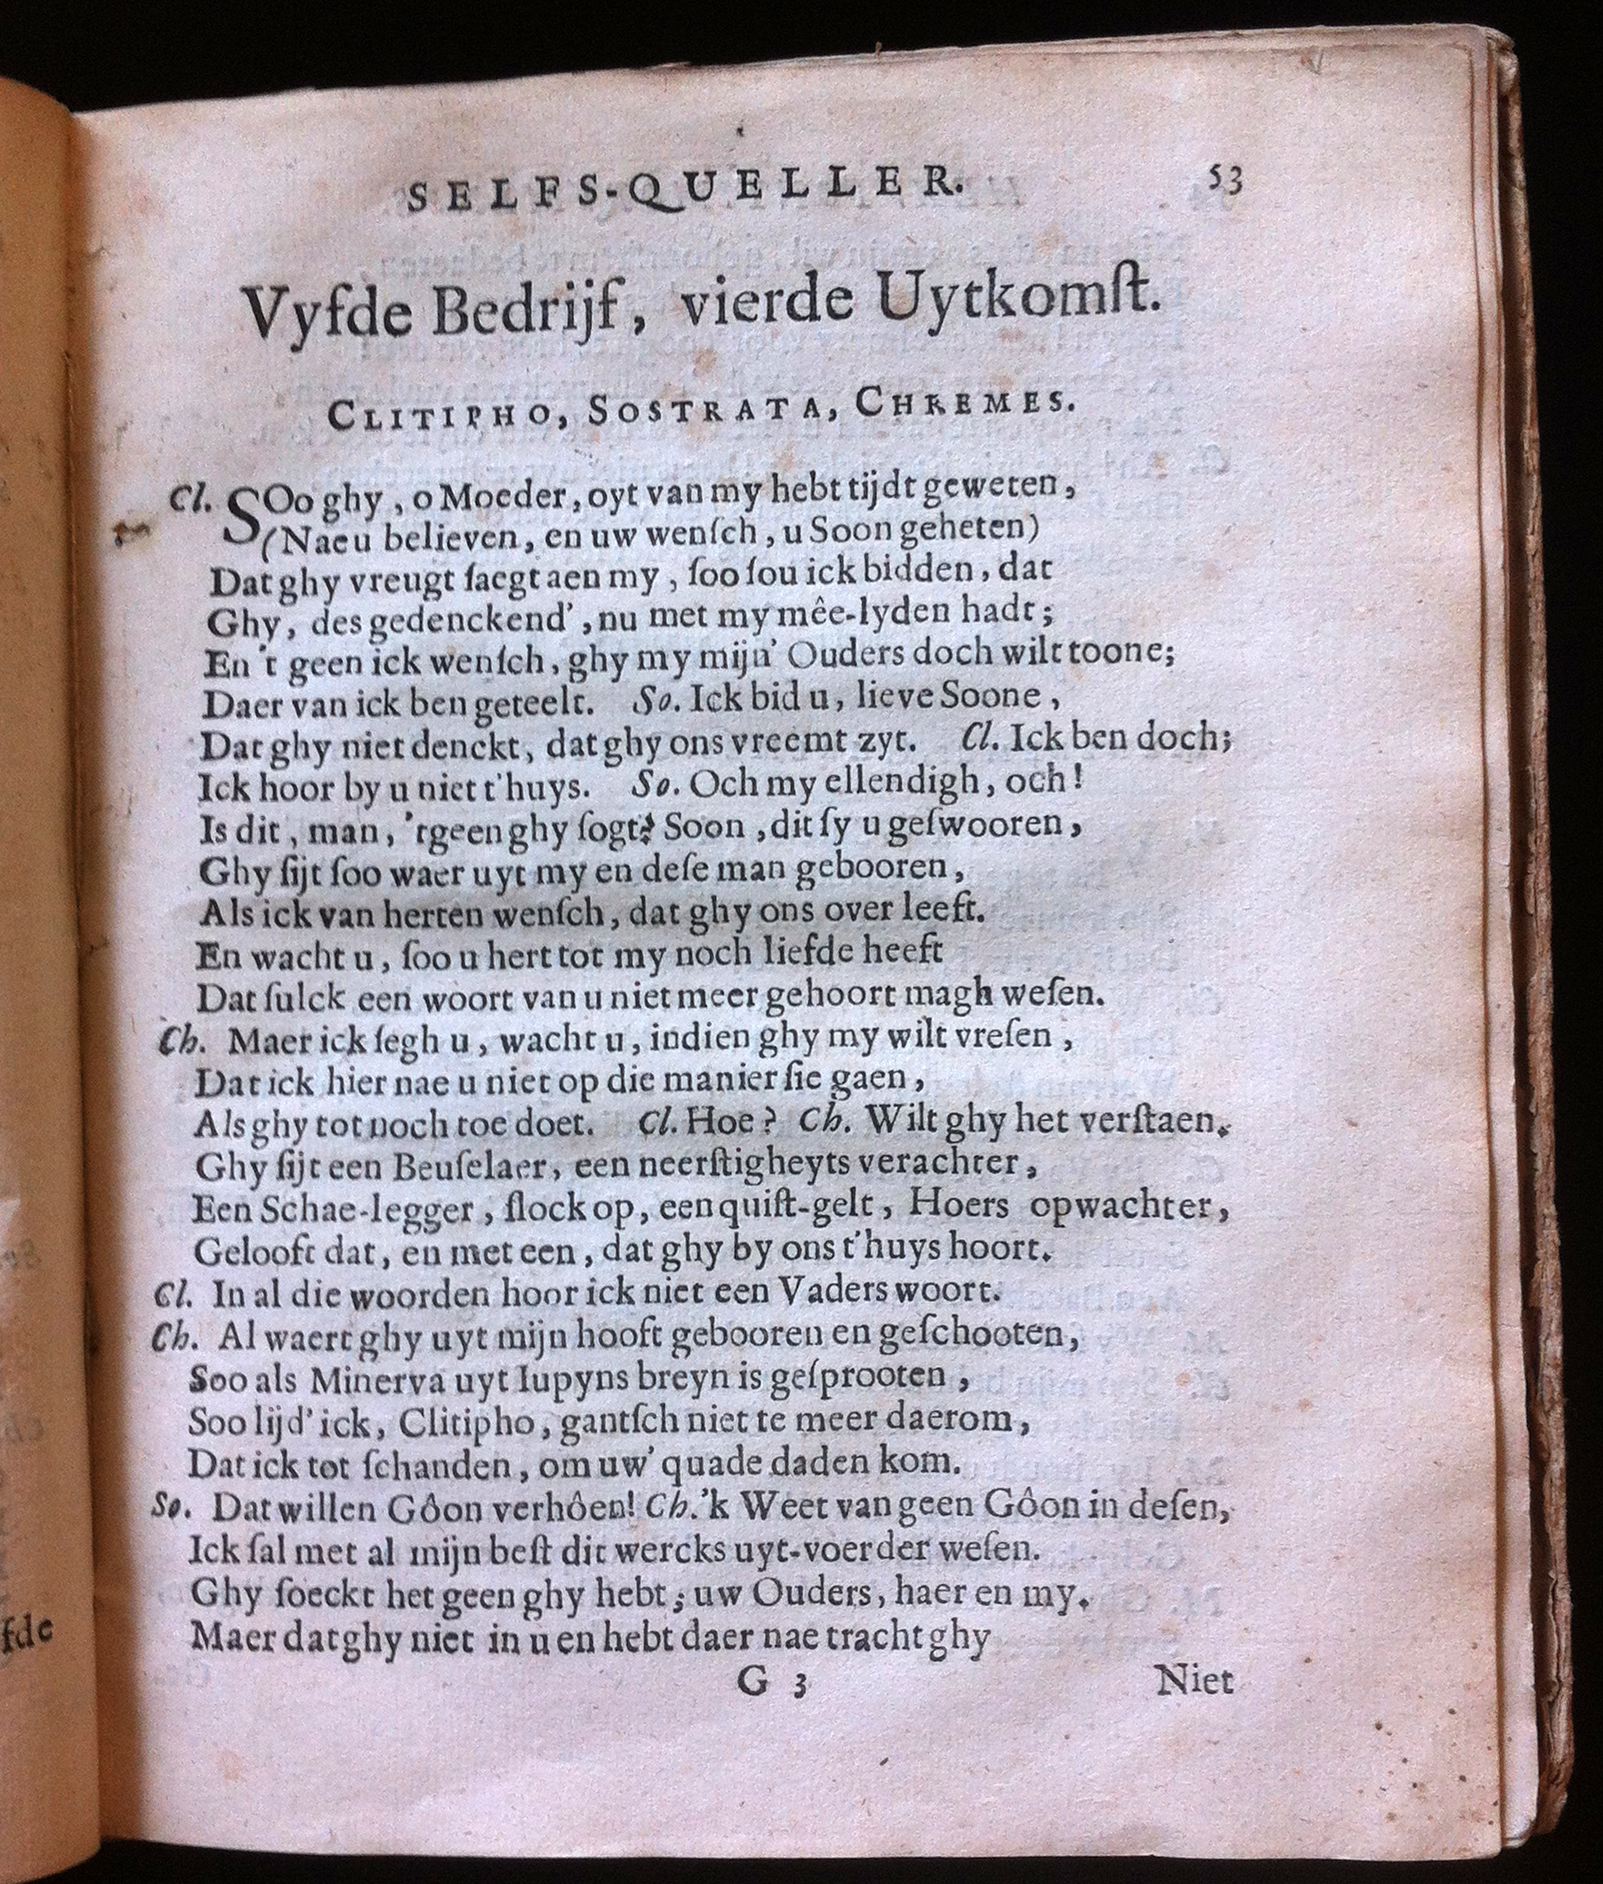 SELFS-QUELLER. 53
Vyfde Bedrijf, vierde Uytkomſt.
CLITIPHO, SOSTRATA, CHREMES.
Cl. SOo ghy, o Moeder, oyt van my hebt tijdt geweten,
(Nae u believen, en uw wenſch, u Soon geheten)
Dat ghy vreugt ſaegt aen my, ſoo ſou ick bidden, dat
Ghy, des gedenckend', nu met my mêe-lyden hadt;
En 't geen ick wenſch, ghy my mijn' Ouders doch wilt toone;
Daer van ick ben geteelt. So. Ick bid u, lieve Soone,
Dat ghy niet denckt, dat ghy ons vreemt zyt. Cl. Ick ben doch;
Ick hoor by u niet t'huys. So. Och my ellendigh, och!
Is dit, man, 'tgeen ghy ſogt? Soon, dit ſy u geſwooren,
Ghy ſijt ſoo waer uyt my en deſe man gebooren,
Als ick van herten wenſch, dat ghy ons over leeft.
En wacht u, ſoo u hert tot my noch liefde heeft
Dat ſulck een woort van u niet meer gehoort magh weſen.
Ch. Maer ick ſegh u, wacht u, indien ghy my wilt vreſen,
Dat ick hier nae u niet op die manier ſie gaen,
Als ghy tot noch toe doet. Cl. Hoe? Ch. Wilt ghy het verſtaen.
Ghy ſijt een Beuſelaer, een neerſtigheyts verachter,
Een Schae-legger, ſlock op, een quiſt-gelt, Hoers opwachter,
Gelooft dat, en met een, dat ghy by ons t'huys hoort.
Cl. In al die woorden hoor ick niet een Vaders woort.
Ch. Al waert ghy uyt mijn hooft gebooren en geſchooten,
Soo als Minerva uyt Iupyns breyn is geſprooten,
Soo lijd' ick, Clitipho, gantſch niet te meer daerom,
Dat ick tot ſchanden, om uw' quade daden kom.
So. Dat willen Gôon verhôen! Ch. 'k Weet van geen Gôon in deſen,
Ick ſal met al mijn beſt dit wercks uyt-voerder weſen.
Ghy ſoeckt het geen ghy hebt; uw Ouders, haer en my.
Maer dat ghy niet in u en hebt daer nae tracht ghy
G 3 Niet
fde